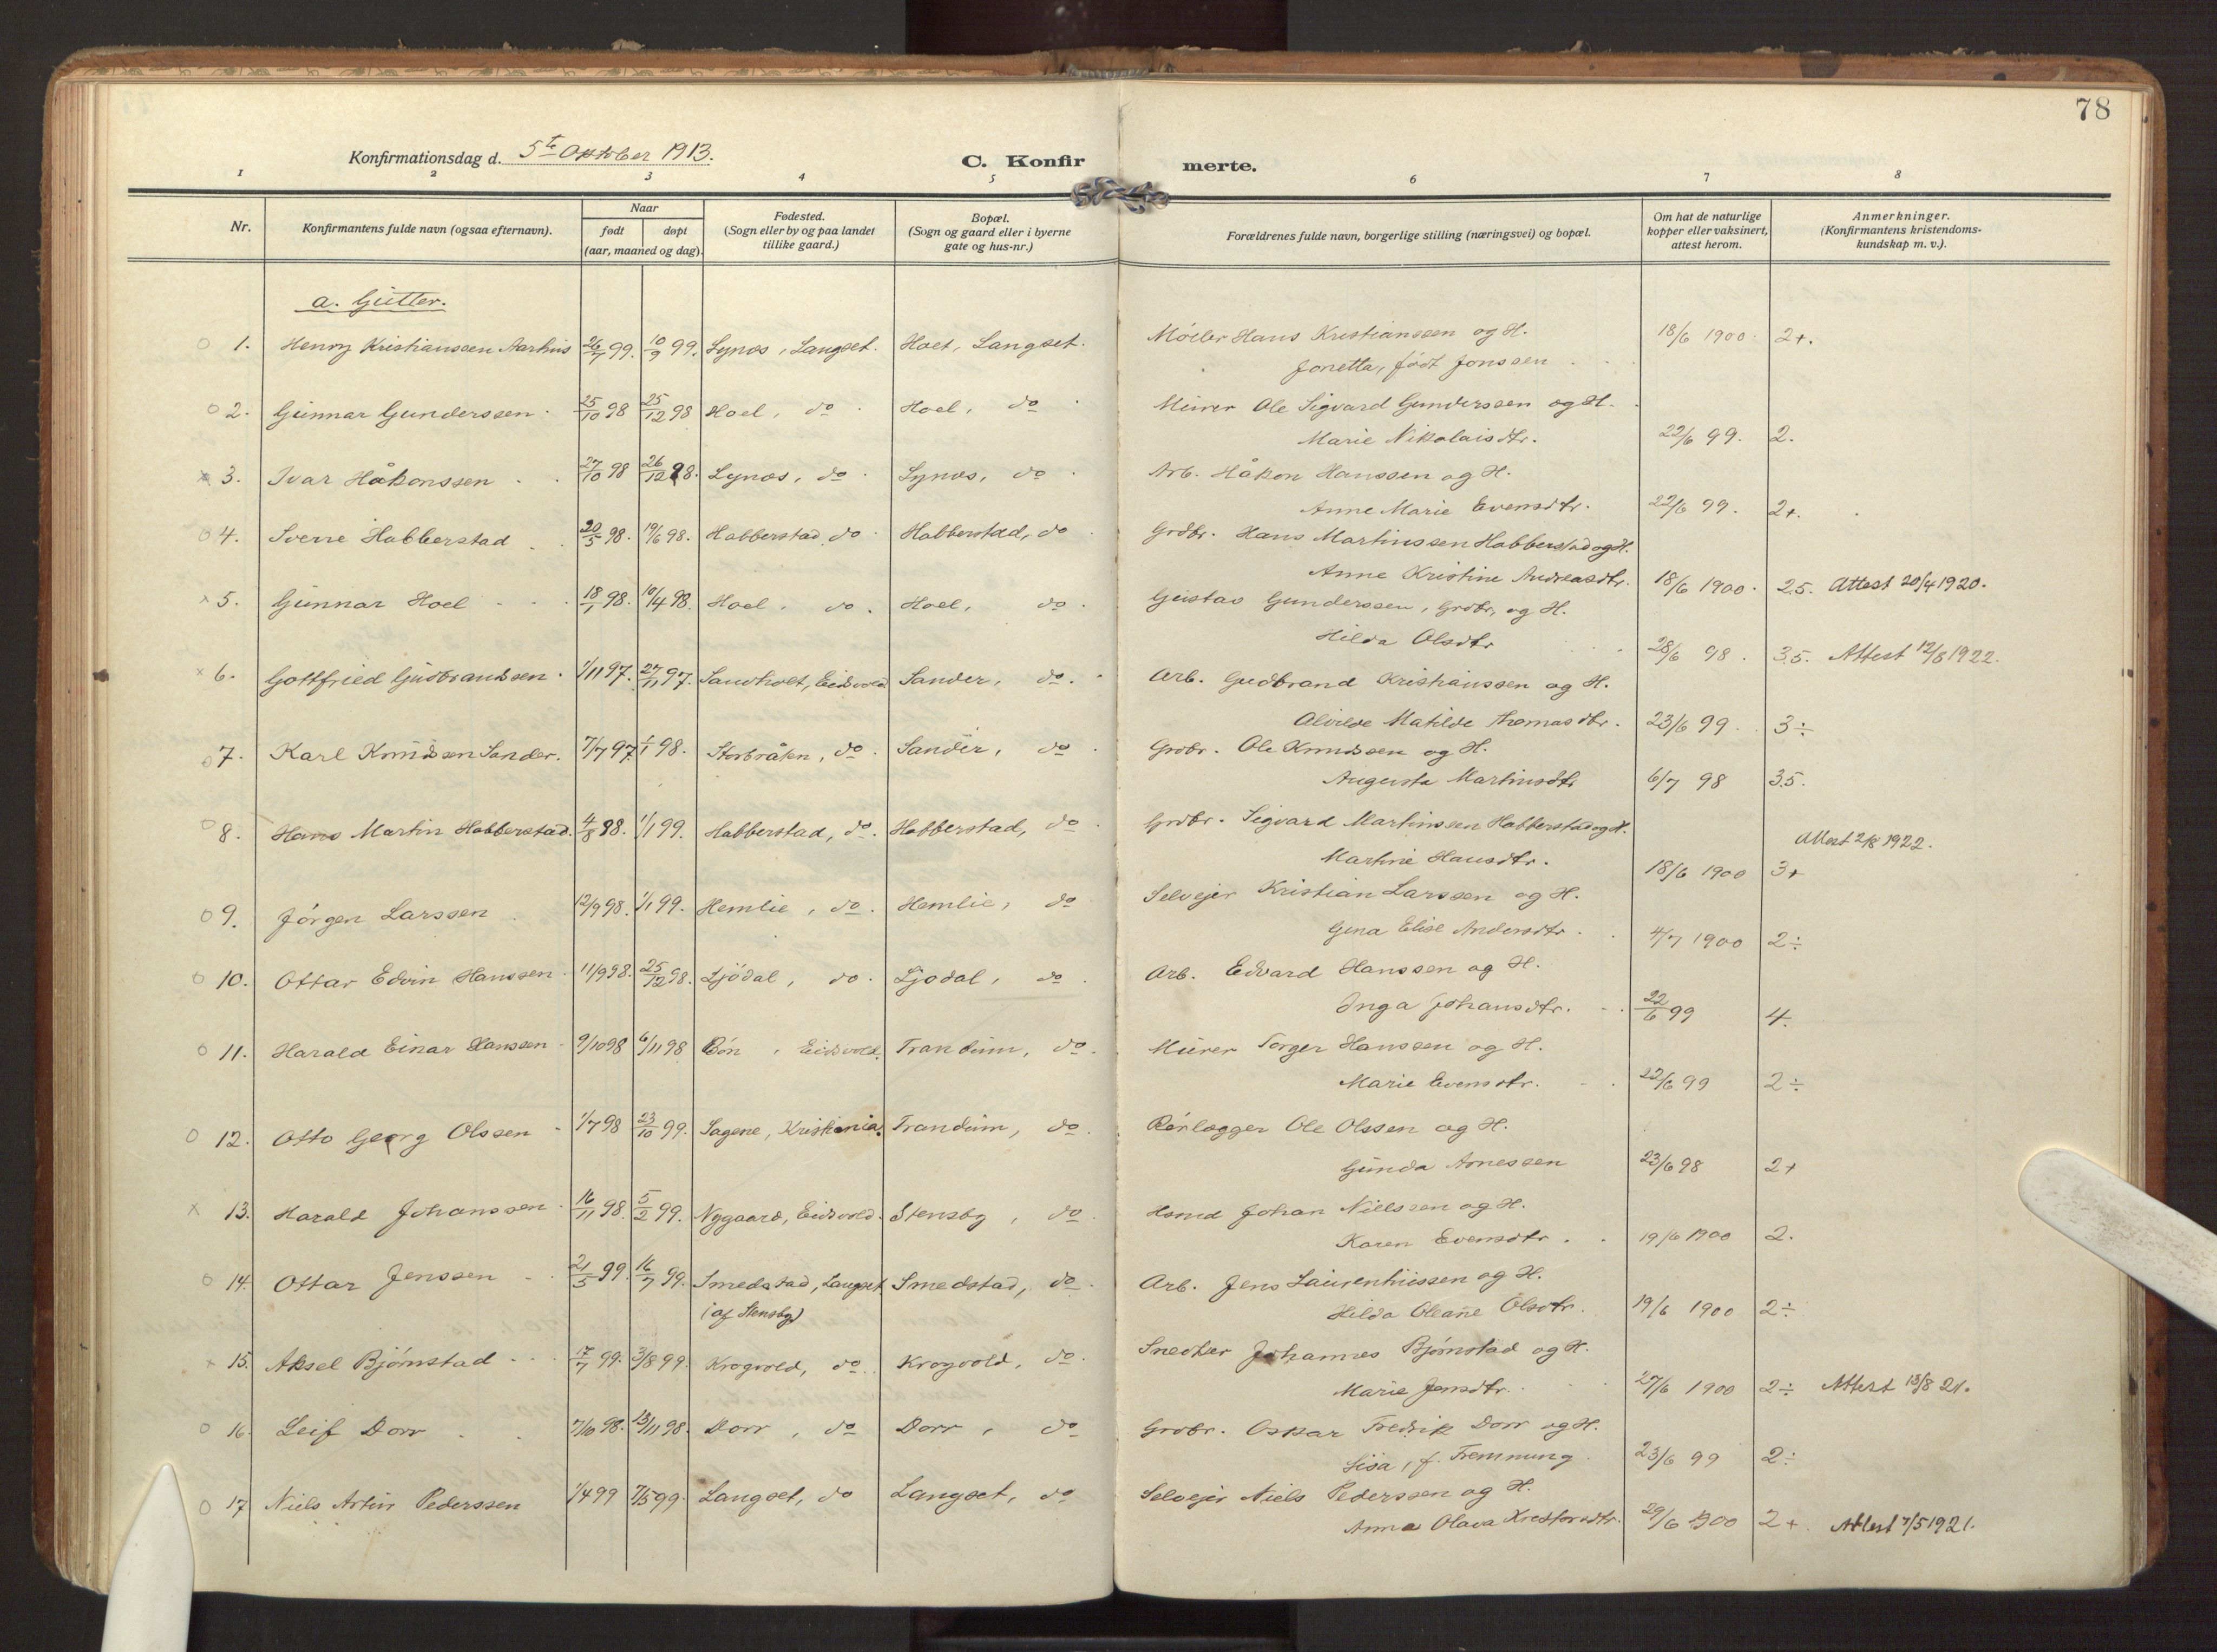 78
Konfirmationsdag d. 5te Oktober 1913.
C. Konfirmerte.
1 2 3 4 5 6 7 8
Nr.
Konfirmantens fulde navn (ogsaa efternavn).
Naar
født døpt
(aar, maaned og dag).
Fødested.
(Sogn eller by og paa landet
tillike gaard.)
Bopæl.
(Sogn og gaard eller i byerne
gate og hus-nr.)
Forældrenes fulde navn, borgerlige stilling (næringsvei) og bopæl.
Om hat de naturlige
kopper eller vaksinert,
attest herom.
Anmerkninger.
(Konfirmantens kristendoms-
kundskap m. v.).
a. Gutter.
1. Henry Kristianssen Aarhus 26/7 99. 10/9 99. Lynæs, Langset. Hoel, Langset. Møller Hans Kristianssen og H. 18/6 1900. 2+.
Jonetta, født Jonssen
2. Gunnar Gunderssen 25/10 98 25/12 98 Hoel, do Hoel, do Murer Ole Sigvard Gunderssen og H.
Marie Nikolaisdtr. 22/6 99. 2.
3. Ivar Håkonssen 27/10 98 26/12 98. Lynæs, do Lynæs, do Arb. Håkon Hanssen og H.
Anne Marie Evensdtr. 22/6 99. 2+.
4. Sverre Habberstad 20/5 98. 19/6 98. Habberstad, do Habberstad, do Grdbr. Hans Martinssen Habberstad og H.
Anne Kristine Andreasdtr. 18/6 1900. 2.5. Attest 20/4 1920.
5. Gunnar Hoel 18/1 98. 10/4 98. Hoel, do. Hoel, do. Gustav Gunderssen, Grdbr, og H.
Hilda Olsdtr 28/6 98. 3.5. Attest 12/8 1922.
6. Gottfried Gudbrandsen 1/11 97. 27/11 97. Sandholt, Eidsvold Sander, do. Arb. Gudbrand Kristianssen og H.
Alvilde Matilde Thomasdtr. 23/6 99. 3÷
7. Karl Knudsen Sander. 7/7 97. 1/1 98. Storbråten, do Sander, do Grdbr. Ole Knudssen og H.
Augusta Martinsdtr 6/7 98 3.5.
8. Hans Martin Habberstad. 4/8 98. 1/1 99. Habberstad, do. Habberstad, do Grdbr. Sigvard Martinssen Habberstad og H.
Attest 2/8 1922.
Martine Hansdtr. 18/6 1900 3+
9. Jörgen Larssen 12/9 98. 1/1 99. Hemlie, do. Hemlie, do Selvejer Kristian Larssen og H.
Gina Elise Andersdtr. 4/7 1900 2÷
10. Ottar Edvin Hanssen 11/9 98. 25/12 98. Ljödal, do. Ljödal, do Arb. Edvard Hanssen og H.
Inga Johansdtr. 22/6 99 4.
11. Harald Einar Hanssen 9/10 98 6/11 98 Bön, Eidsvold. Trandum, do. Murer Torger Hanssen og H.
Marie Evensdtr. 22/6 99 2÷
12. Otto Georg Olssen 1/7 98 23/10 99. Sagene, Kristiania. Trandum, do. Rörlægger Ole Olssen og H.
Gunda Arnessen 23/6 98 2+
13. Harald Johanssen 16/11 98. 5/2 99. Nygaard, Eidsvold. Stensby, do. Hsmd Johan Nielssen og H.
Karen Evensdtr. 19/6 1900 2.
14. Ottar Jenssen 21/5 99. 16/7 99. Smedstad, Langset Smedstad, do. Arb. Jens Laurentiussen og H.
(af Stensby) Hilda Oleane Olsdtr. 19/6 1900 2÷
15. Aksel Björnstad 17/7 99. 3/8 99. Krogvold, do. Krogvold, do. Snedker Johannes Björnstad og H.
Marie Jensdtr. 27/6 1900 2÷ Attest 13/8 21.
16. Leif Dorr 7/10 98. 13/11 98. Dorr, do Dorr, do Grdbr. Oskar Fredrik Dorr og H.
Lisa, f. Fremming 23/6 99 2÷
17 Niels Artur Pederssen 1/4 99 7/5 99. Langset, do Langset, do Selvejer Niels Pederssen og H.
Anna Olava Kristofersdtr. 29/6 1900 2+ Attest 7/5 1921.